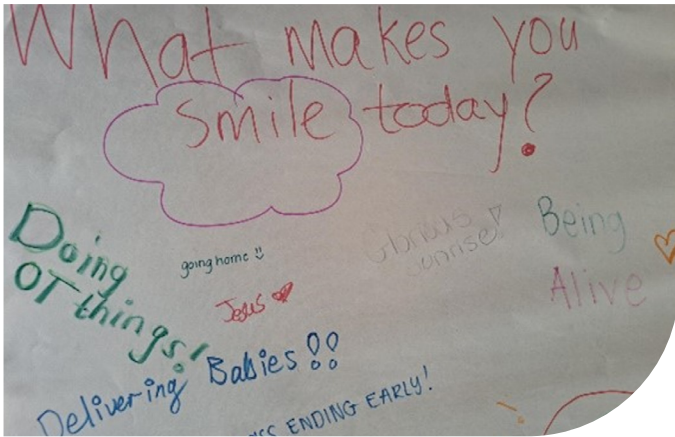 What makes you
smile today?
Doing
OT things!
going home
Jesus
Glorious
sunrise!
Being
Alive
Delivering Babies!!
ENDING EARLY!